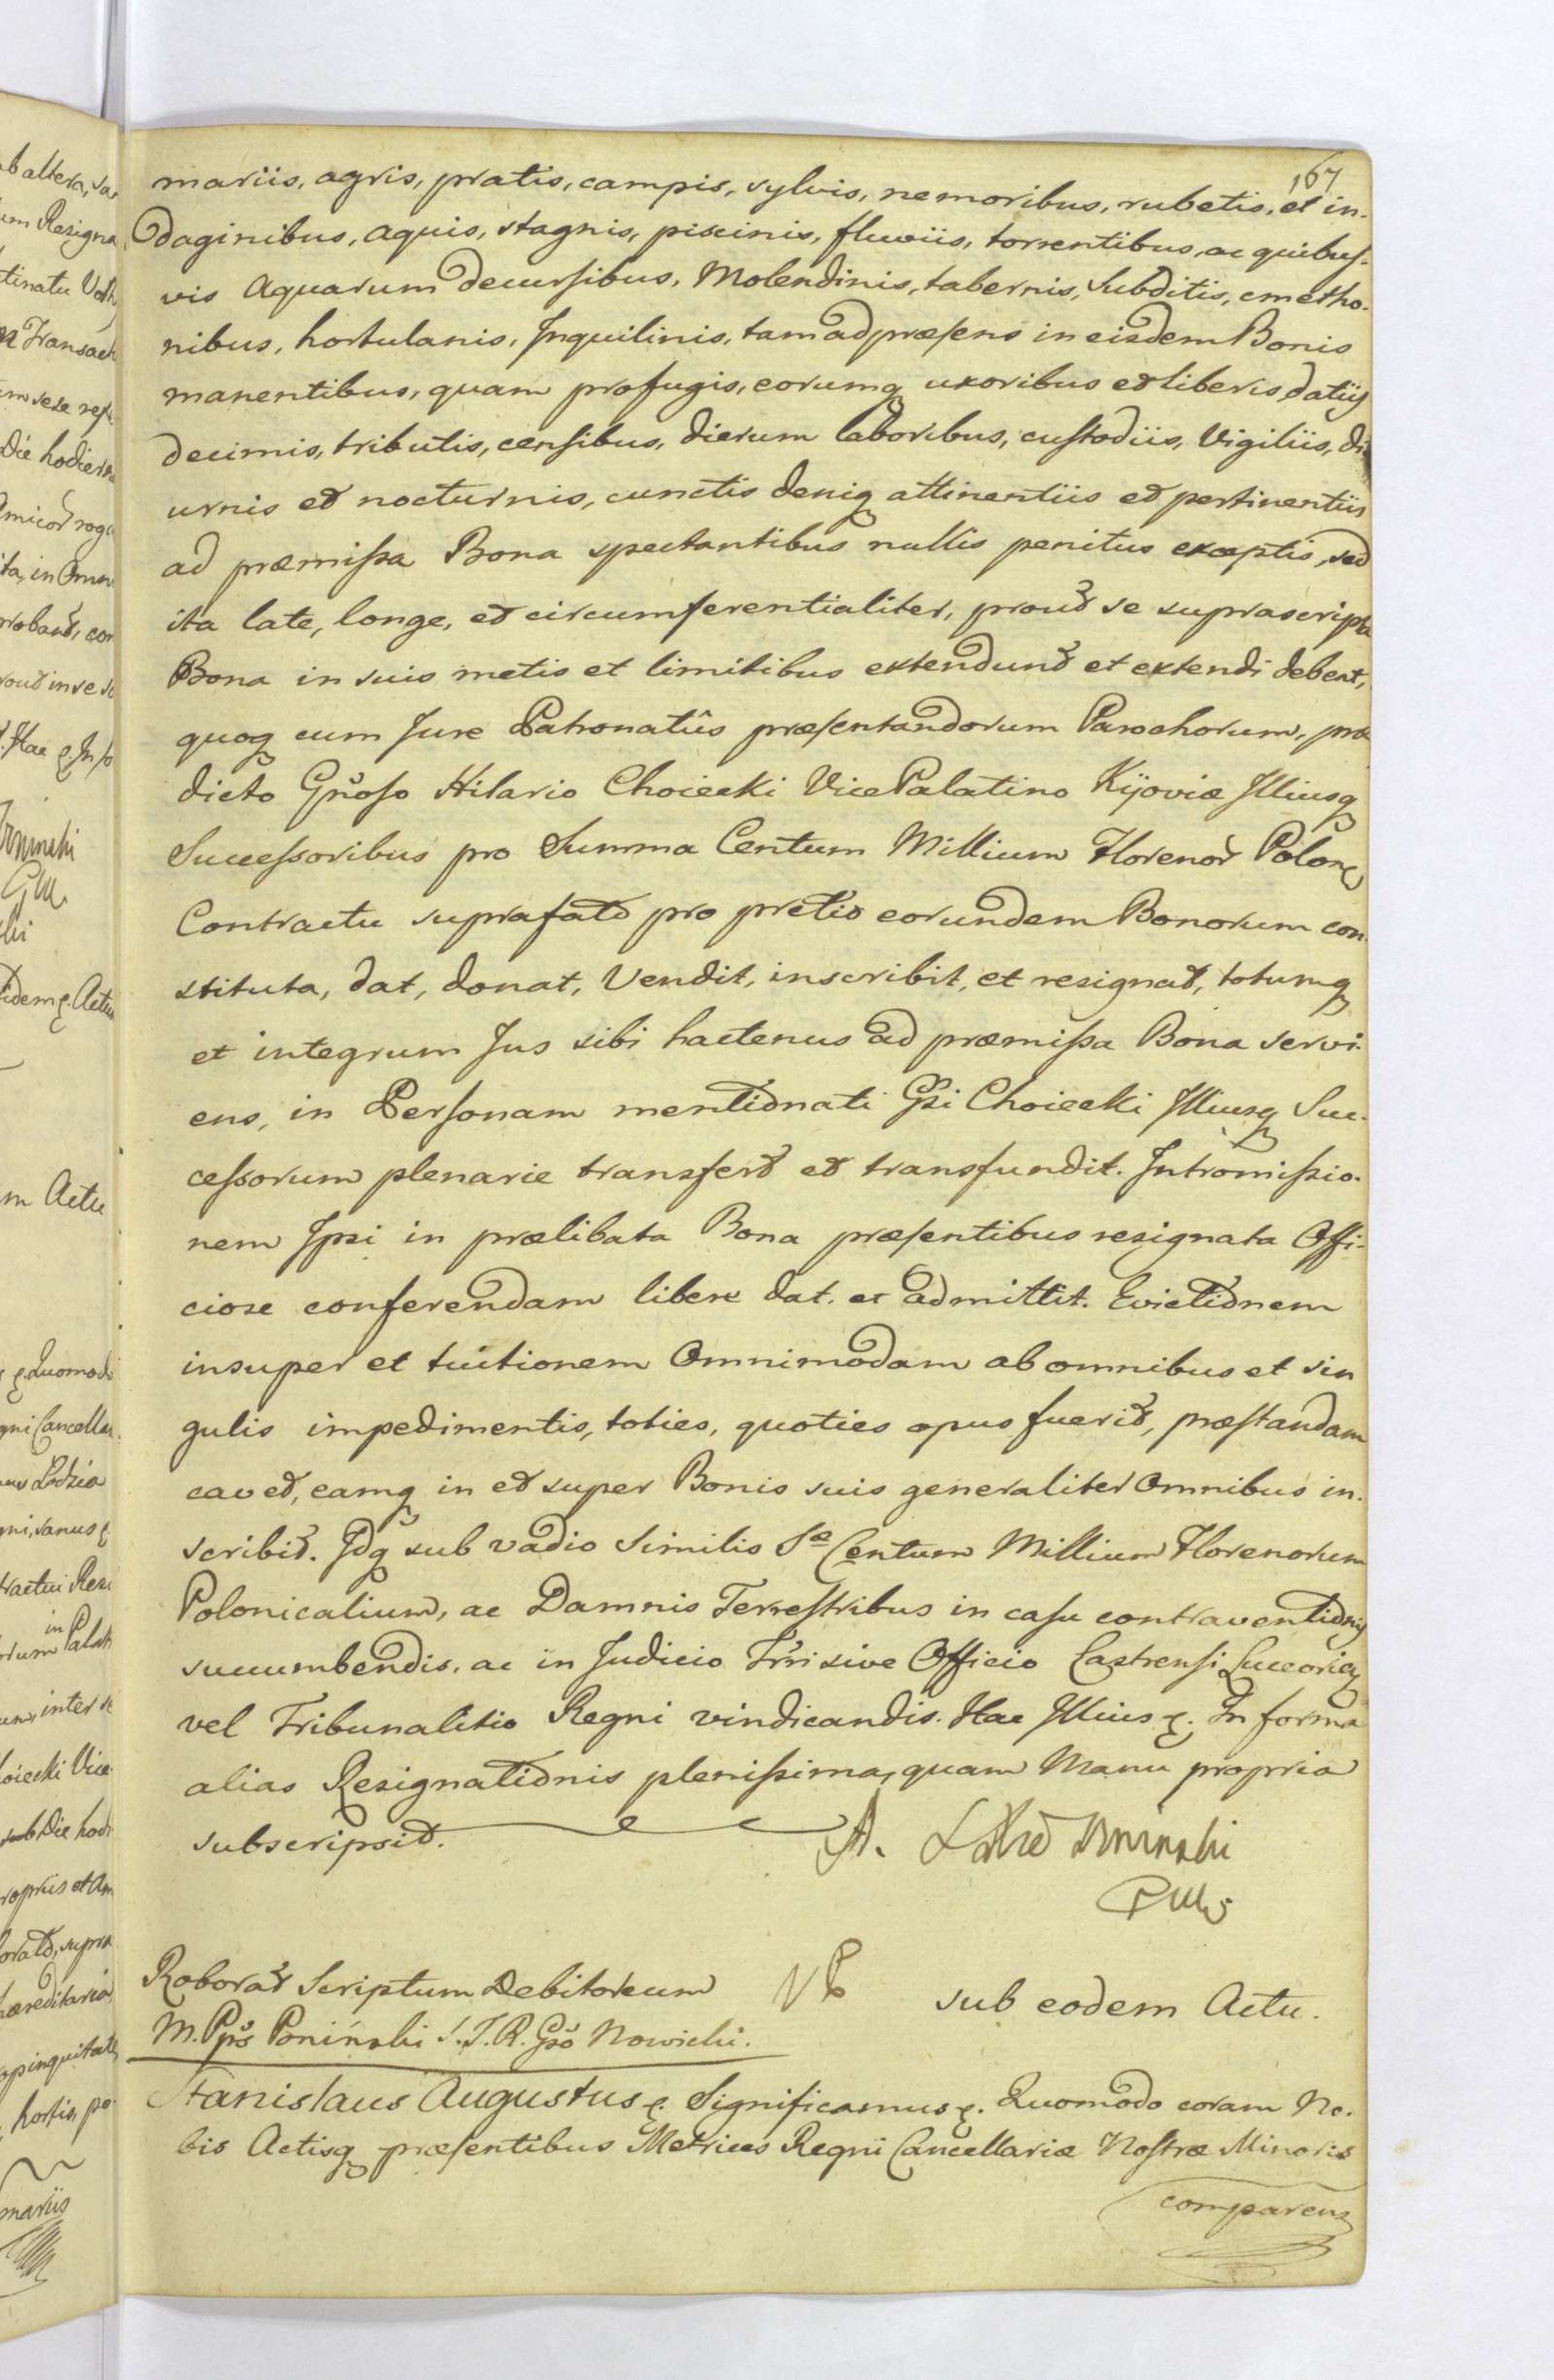 167
mariis, agris, pratis, campis, sylvis, nemoribus, rubetis, et in-
daginibus, aquis, stagnis, piscinis, fluviis, torrentibus, ac quibus-
vis Aquarum decursibus, Molendinis, tabernis, Subditis, cmetho-
nibus, hortulanis, Inquilinis, tam ad præsens in eisdem Bonis
manentibus, quam profugis, eorumq uxoribus et liberis, datiis
decimis, tributis, censibus, dierum laboribus, custodiis, Vigiliis, di
urnis et nocturnis, cunctis deniq attinentiis et pertinentiis
ad præmissa Bona spectantibus nullis penitus exceptis, sed
ita late, longe, et circumferentialiter, prout se suprascripta
Bona in suis metis et limitibus extendunt et extendi debent,
quoq cum Jure Patronatûs præsentandorum Parochorum, præ
dicto Gnoso Hilario Choiecki Vice Palatino Kijoviæ Illiusq
Successoribus pro Summa Centum Millium Florenor Polon
Contractu suprafato pro pretio eorundem Bonorum con-
stituta, dat, donat, Vendit, inscribit, et resignat, totumq
et integrum Jus sibi hactenus ad præmissa Bona servi-
ens, in Personam mentionati Gsi Choiecki Illiusq Suc-
cessorum plenarie transfert et transfundit. Intromissio-
nem Ipsi in prælibata Bona præsentibus resignata Offi-
ciose conferendam libere dat, ac admittit. Evictionem
insuper et tuitionem Omnimodam ab omnibus et sin
gulis impedimentis, toties, quoties opus fuerit, præstandam
cavet, eamq in et super Bonis suis generaliter Omnibus in-
scribit. Idq sub vadio Similis Sæ Centum Millium Florenorum
Polonicalium, ac Damnis Terrestribus in casu contraventionis
succumbendis, ac in Judicio Trri sive Officio Castrensi Luceorien
vel Tribunalitio Regni vindicandis. Hac Illius &. In forma
alias Resignationis plenissima, quam Manu propria
subscripsit.
A. Poninski
Roborat Scriptum Debitoreum
sub eodem Actu.
M. Pps Poninski S. T. R. Gso Nowicki.
Stanislaus Augustus &. Significamus &. Quomodo coram No-
bis Actisq præsentibus Metrices Regni Cancellariæ Nostræ Minoris
comparens